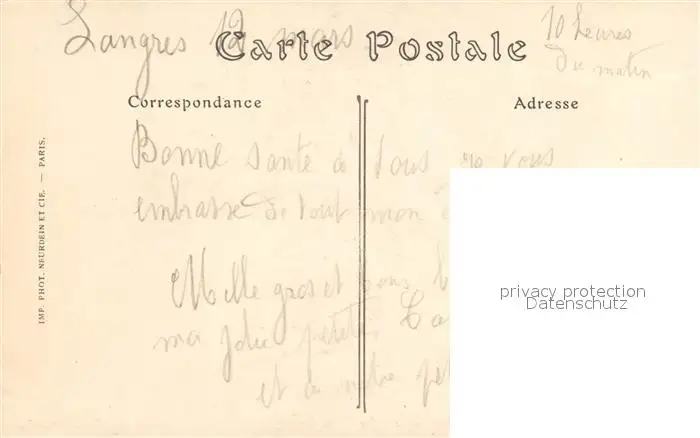 Langres 12 mars
10 heures
du matin
Carte Postale
Correspondance
Adresse
Bonne santé à tous je vous
embrasse de tout mon
Mille gros et bons
ma jolie petite
et à notre
IMP. PHOT. NEURDEIN ET CIE. — PARIS.
privacy protection
Datenschutz